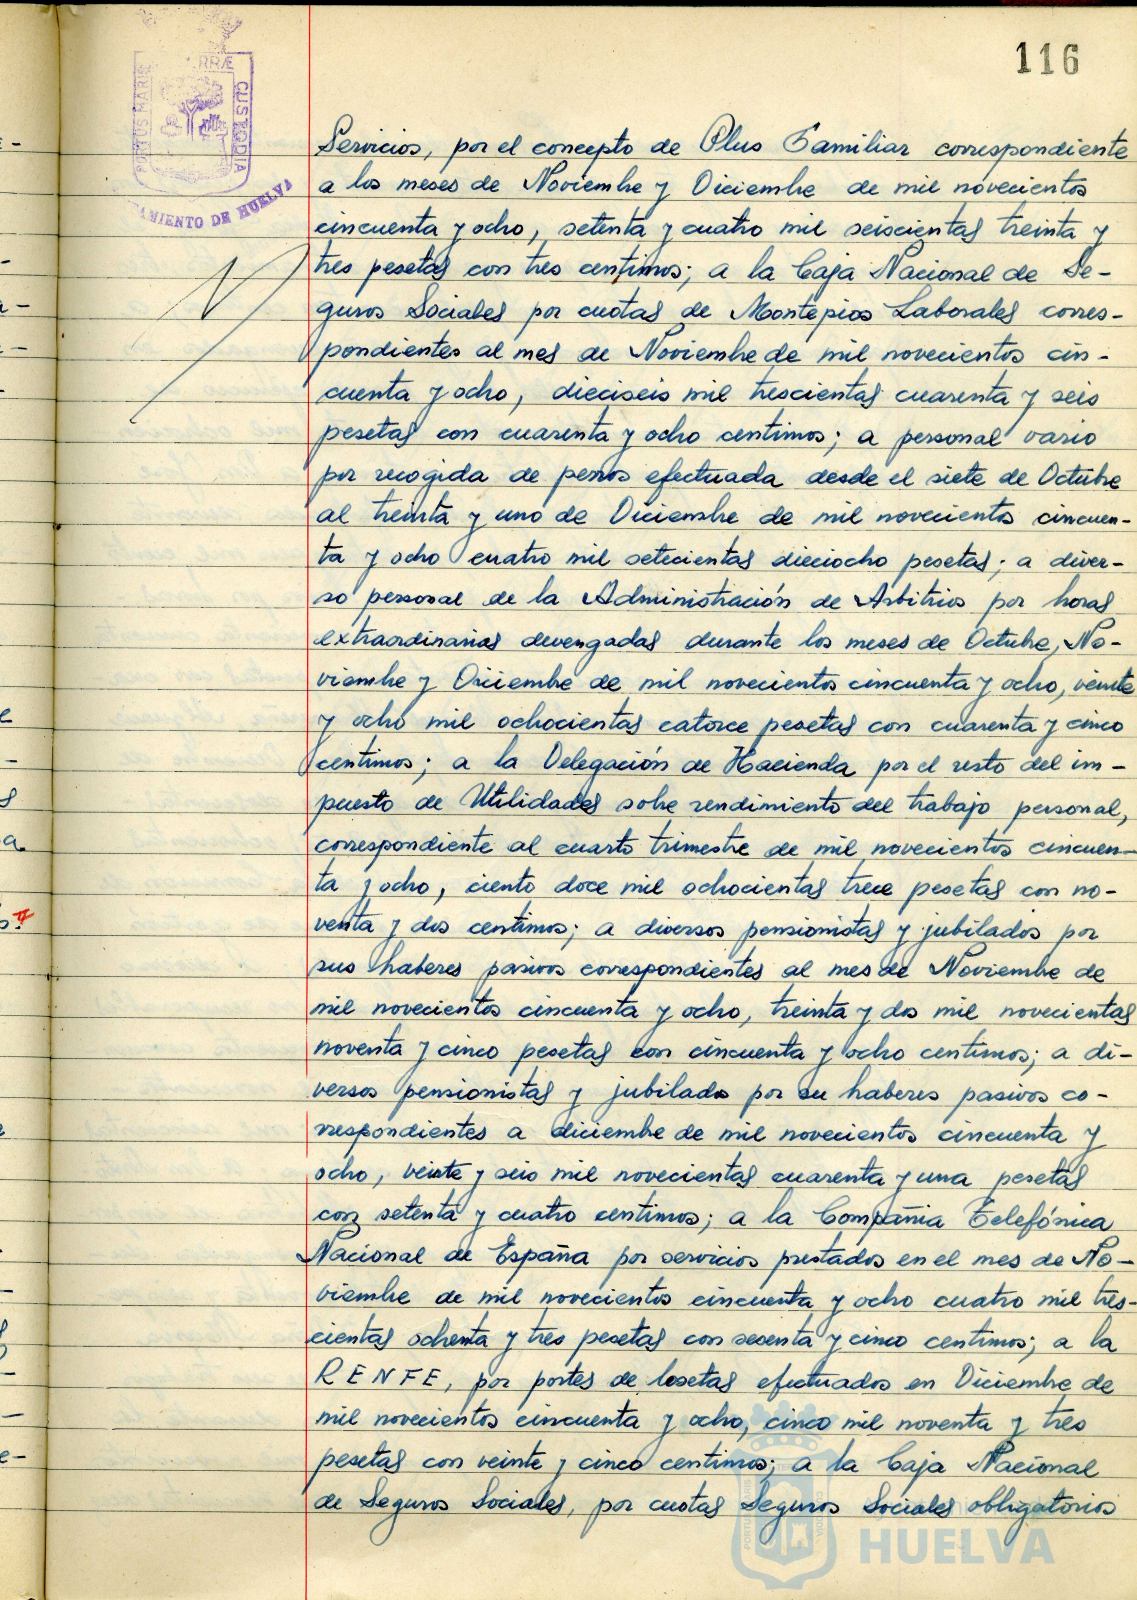 116
PORTUS MARIS
RRÆ
CUSTODIA
AMIENTO DE HUELVA
Servicios, por el concepto de Plus Familiar correspondiente
a los meses de Noviembre y Diciembre de mil novecientos
cincuenta y ocho, setenta y cuatro mil seiscientas treinta y
tres pesetas con tres centimos; a la Caja Nacional de Se-
guros Sociales por cuotas de Montepios Laborales corres-
pondientes al mes de Noviembre de mil novecientos cin-
cuenta y ocho, dieciseis mil trescientas cuarenta y seis
pesetas con cuarenta y ocho centimos; a personal vario
por recogida de perros efectuada desde el siete de Octubre
al treinta y uno de Diciembre de mil novecientos cincuen-
ta y ocho cuatro mil setecientas dieciocho pesetas; a diver-
so personal de la Administración de Arbitrios por horas
extraordinarias devengadas durante los meses de Octubre, No-
viembre y Diciembre de mil novecientos cincuenta y ocho, veinte
y ocho mil ochocientas catorce pesetas con cuarenta y cinco
centimos; a la Delegación de Hacienda por el resto del im-
puesto de Utilidades sobre rendimiento del trabajo personal,
correspondiente al cuarto trimestre de mil novecientos cincuen-
ta y ocho, ciento doce mil ochocientas trece pesetas con no-
venta y dos centimos; a diversos pensionistas y jubilados por
sus haberes pasivos correspondientes al mes de Noviembre de
mil novecientos cincuenta y ocho, treinta y dos mil novecientas
noventa y cinco pesetas con cincuenta y ocho centimos; a di-
versos pensionistas y jubilados por su haberes pasivos co-
rrespondientes a diciembre de mil novecientos cincuenta y
ocho, veinte y seis mil novecientas cuarenta y una pesetas
con setenta y cuatro centimos; a la Compañia Telefónica
Nacional de España por servicios prestados en el mes de No-
viembre de mil novecientos cincuenta y ocho cuatro mil tres-
cientas ochenta y tres pesetas con sesenta y cinco centimos; a la
RENFE, por portes de losetas efectuados en Diciembre de
mil novecientos cincuenta y ocho, cinco mil noventa y tres
pesetas con veinte y cinco centimos; a la Caja Nacional
de Seguros Sociales, por cuotas Seguros Sociales obligatorios
HUELVA